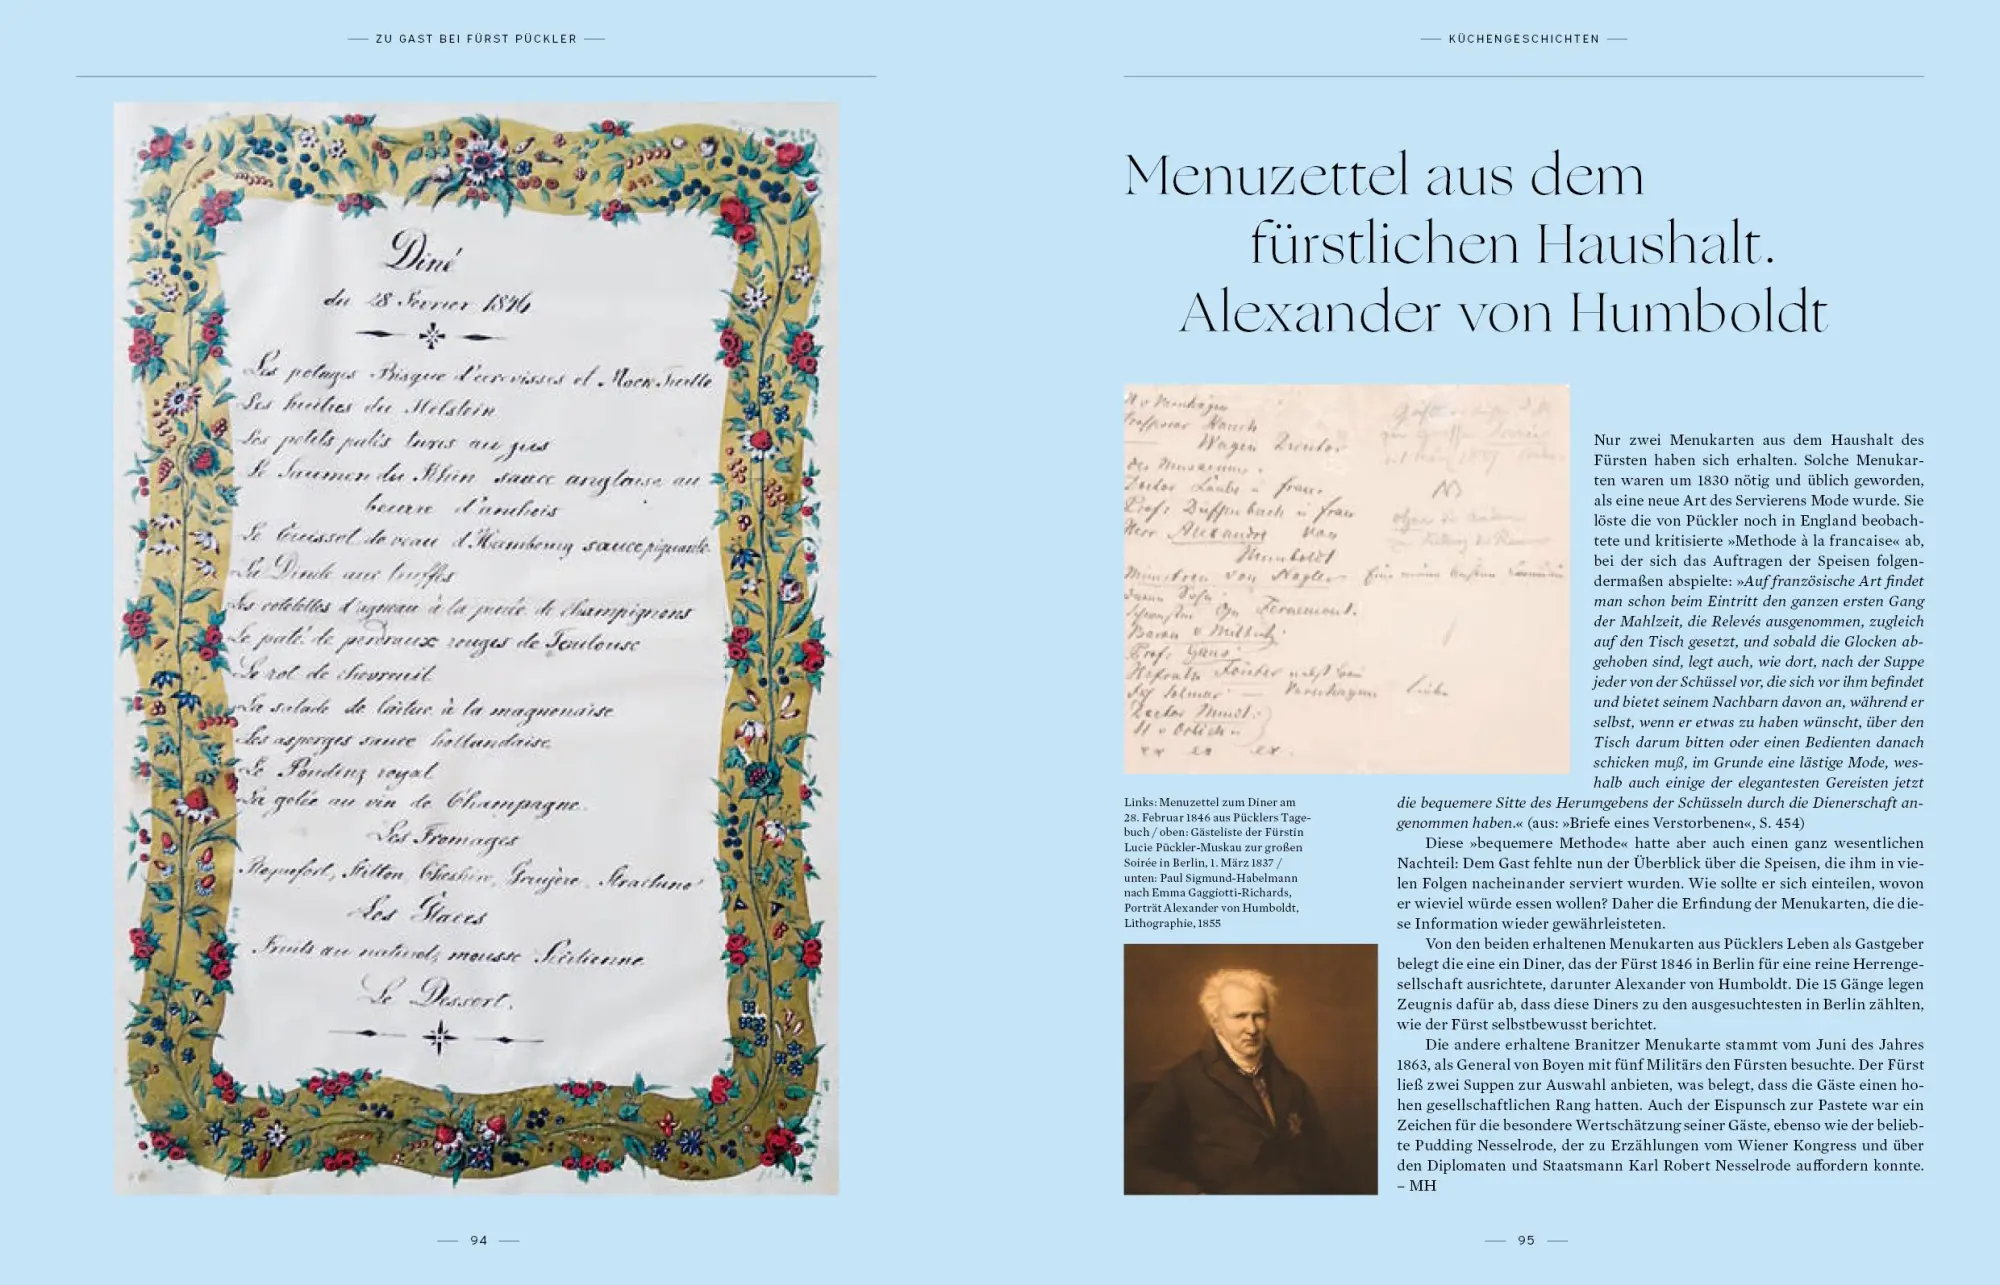 ZU GAST BEI FÜRST PÜCKLER
Diné
du 28 Fevrier 1846
Les potages Bisque d'ecrevisses et Mock Turtle
Les huitres du Holstein
Les petits patés au jus
Le Saumon du Rhin sauce anglaise au
beurre d'anchois
Le Cuissot de veau d'Hambourg sauce piquante
La Dinde aux truffes
Les cotelettes d'agneau à la purée de champignons
Le paté de perdraux rouges de Toulouse
Le rot de chevreuil
La salade de laitue à la magnonaise
Les asperges sauce hollandaise
Le Pouding royal
La gelée au vin de Champagne.
Les Fromages
Roquefort, Stilton, Cheshire, Gruyère, Strachino
Les Glaces
Fruits au naturel, mousse
Le Dessert.
94
KÜCHENGESCHICHTEN
Menuzettel aus dem
fürstlichen Haushalt.
Alexander von Humboldt
Professor Rauch
Wagen Director
des Museums.
Doctor Laube u frau.
Prof. Dieffenbach u frau
Herr Alexander von
Humboldt
von Nagler
Prof. Gans
Varnhagen
Nur zwei Menukarten aus dem Haushalt des
Fürsten haben sich erhalten. Solche Menukar-
ten waren um 1830 nötig und üblich geworden,
als eine neue Art des Servierens Mode wurde. Sie
löste die von Pückler noch in England beobach-
tete und kritisierte »Methode à la francaise« ab,
bei der sich das Auftragen der Speisen folgen-
dermaßen abspielte: »Auf französische Art findet
man schon beim Eintritt den ganzen ersten Gang
der Mahlzeit, die Relevés ausgenommen, zugleich
auf den Tisch gesetzt, und sobald die Glocken ab-
gehoben sind, legt auch, wie dort, nach der Suppe
jeder von der Schüssel vor, die sich vor ihm befindet
und bietet seinem Nachbarn davon an, während er
selbst, wenn er etwas zu haben wünscht, über den
Tisch darum bitten oder einen Bedienten danach
schicken muß, im Grunde eine lästige Mode, wes-
halb auch einige der elegantesten Gereisten jetzt
die bequemere Sitte des Herumgebens der Schüsseln durch die Dienerschaft an-
genommen haben.« (aus: »Briefe eines Verstorbenen«, S. 454)
Diese »bequemere Methode« hatte aber auch einen ganz wesentlichen
Nachteil: Dem Gast fehlte nun der Überblick über die Speisen, die ihm in vie-
len Folgen nacheinander serviert wurden. Wie sollte er sich einteilen, wovon
er wieviel würde essen wollen? Daher die Erfindung der Menukarten, die die-
se Information wieder gewährleisteten.
Von den beiden erhaltenen Menukarten aus Pücklers Leben als Gastgeber
belegt die eine ein Diner, das der Fürst 1846 in Berlin für eine reine Herrenge-
sellschaft ausrichtete, darunter Alexander von Humboldt. Die 15 Gänge legen
Zeugnis dafür ab, dass diese Diners zu den ausgesuchtesten in Berlin zählten,
wie der Fürst selbstbewusst berichtet.
Die andere erhaltene Branitzer Menukarte stammt vom Juni des Jahres
1863, als General von Boyen mit fünf Militärs den Fürsten besuchte. Der Fürst
ließ zwei Suppen zur Auswahl anbieten, was belegt, dass die Gäste einen ho-
hen gesellschaftlichen Rang hatten. Auch der Eispunsch zur Pastete war ein
Zeichen für die besondere Wertschätzung seiner Gäste, ebenso wie der belieb-
te Pudding Nesselrode, der zu Erzählungen vom Wiener Kongress und über
den Diplomaten und Staatsmann Karl Robert Nesselrode auffordern konnte.
– MH
Links: Menuzettel zum Diner am
28. Februar 1846 aus Pücklers Tage-
buch / oben: Gästeliste der Fürstin
Lucie Pückler-Muskau zur großen
Soirée in Berlin, 1. März 1837 /
unten: Paul Sigmund-Habelmann
nach Emma Gaggiotti-Richards,
Porträt Alexander von Humboldt,
Lithographie, 1855
95